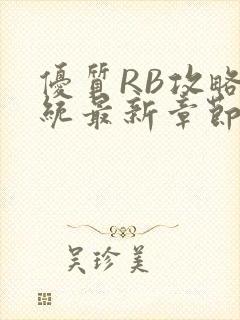 優質RB攻略
統最新章節
吳珍美